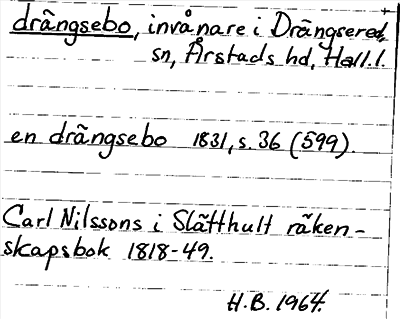 drängsebo, invånare i Drängsered,
sn, Årstads hd, Hall.l.
en drängsebo 1831, s. 36 (599).
Carl Nilssons i Slätthult räken-
skapsbok 1818-49.
H.B. 1964.